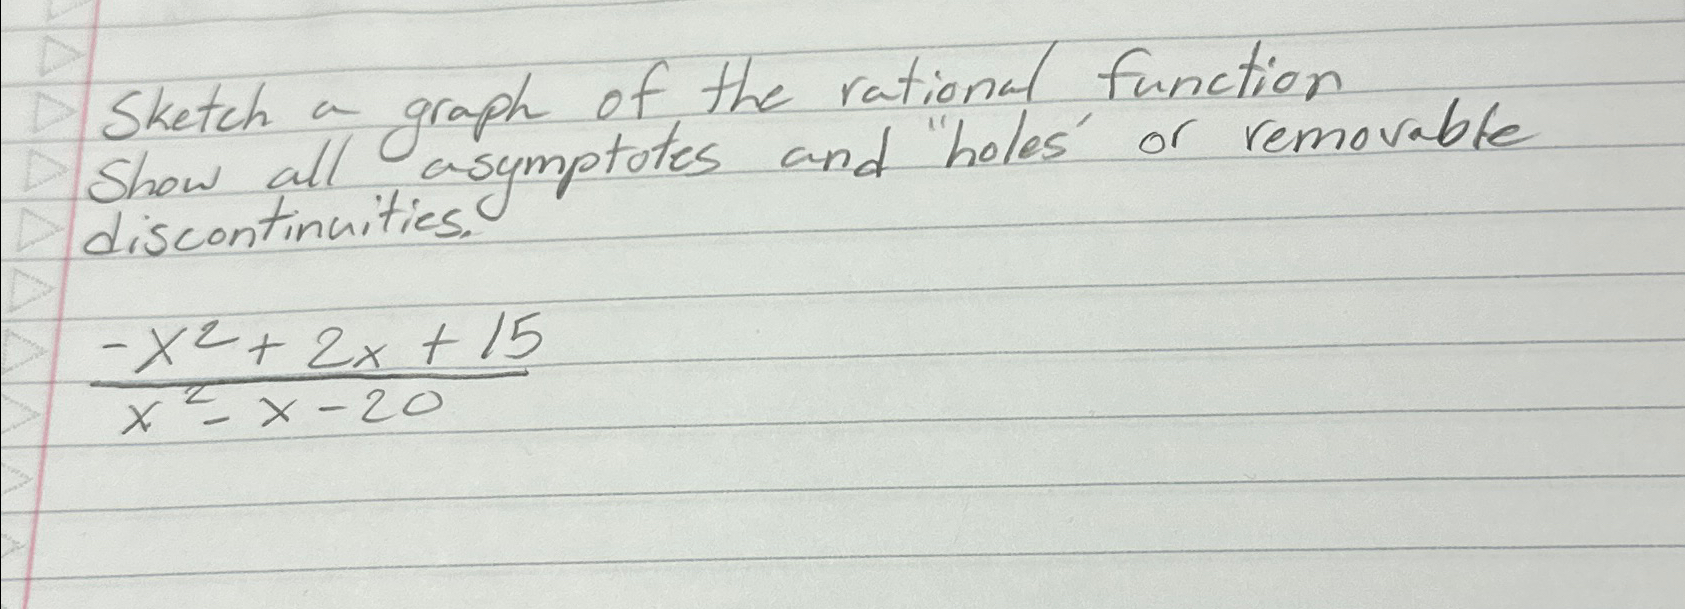 Sketch a graph of the rational function
Show all asymptotes and "holes' or removable
discontinuities.
-x² + 2x + 15
x² - x - 20